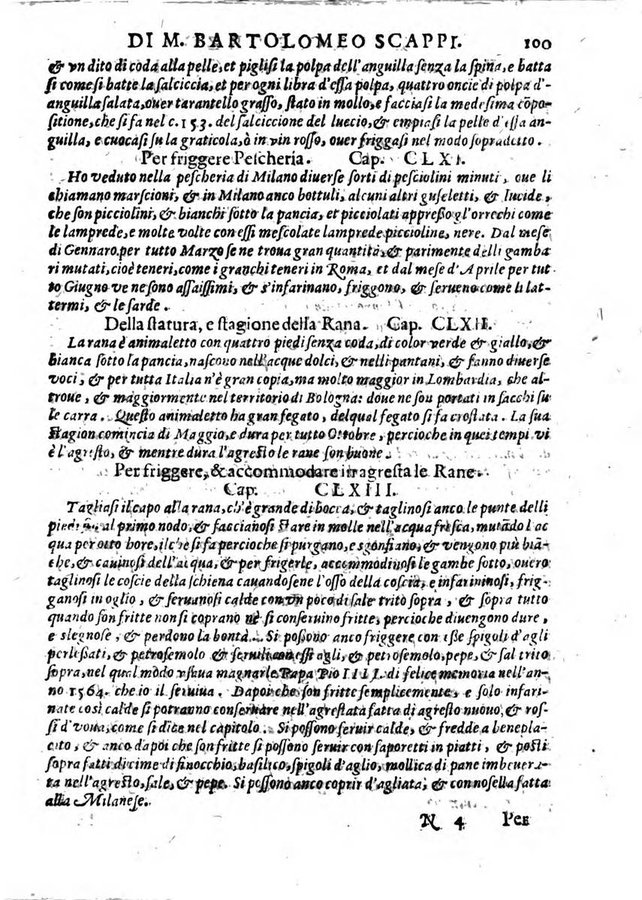 DI M. BARTOLOMEO SCAPPI. 100
& vn dito di coda alla pelle, et piglisi la polpa dell'anguilla senza la spina, e batta
si come si batte la salciccia, et per ogni libra d'essa polpa, quattro oncie di polpa d'-
anguilla salata, ouer tarantello grasso, stato in mollo, e facciasi la medesima cōpo-
sitione, che si fa nel c. 153. del salciccione del luccio, & empiasi la pelle d'essa an-
guilla, e cuocasi su la graticola, ò in vin rosso, ouer friggasi nel modo sopradetto.
Per friggere Pescheria. Cap. CLXI.
Ho veduto nella pescheria di Milano diuerse sorti di pesciolini minuti, oue li
chiamano marscioni, & in Milano anco bottuli, alcuni altri guseletti, & lucide,
che son picciolini, & bianchi sotto la pancia, et picciolati appresso gl'orrechi come
le lamprede, e molte volte con essi mescolate lamprede piccioline, nere. Dal mese
di Gennaro per tutto Marzo se ne troua gran quantità, & parimente delli gamba
ri mutati, cioè teneri, come i granchi teneri in Roma, et dal mese d'Aprile per tut
to Giugno ve ne sono assaissimi, & s'infarinano, friggono, & serueno come li lat-
termi, & le sarde.
Della statura, e stagione della Rana. Cap. CLXII.
La rana è animaletto con quattro piedi senza coda, di color verde & giallo, &
bianca sotto la pancia, nascono nell'acque dolci, & nelli pantani, & fanno diuerse
voci, & per tutta Italia n'è gran copia, ma molto maggior in Lombardia, che al-
troue, & maggiormente nel territorio di Bologna: doue ne son portati in sacchi su
le carra. Questo animaletto ha gran fegato, del qual fegato si fa crostata. La sua
stagion comincia di Maggio, e dura per tutto Ottobre, percioche in quei tempi vi
è l'agresto, & mentre dura l'agresto le rane son buone.
Per friggere, & accommodare in agresta le Rane.
Cap. CLXIII.
Tagliasi il capo alla rana, ch'è grande di bocca, & taglinosi anco le punte delli
piedi al primo nodo, & faccianosi stare in molle nell'acqua fresca, mutādo l'ac
qua per otto hore, il chè si fa percioche si purgano, e sgonfiano, & vengono più biā-
che, & cauinosi dell'acqua, & per frigerle, accommodinosi le gambe sotto, ouero
taglinosi le coscie della schiena cauandosene l'osso della coscia, e infarininosi, frig-
ganosi in oglio, & seruanosi calde con vn poco di sale trito sopra, & sopra tutto
quando son fritte non si coprano nè si conseruino fritte, percioche diuengono dure,
e slegnose, & perdono la bontà. Si possono anco friggere con esse spigoli d'agli
perlessati, & petrosemolo & seruili con essi agli, & petrosemolo, pepe, & sal trito
sopra, nel qual modo vsaua magnarle Papa Pio IIII. di felice memoria nell'an-
no 1564. che io il seruiua. Dapoi che son fritte semplicemente, e solo infari-
nate così calde si potranno conseruare nell'agrestata fatta di agresto nuouo, & ros-
si d'voua, come si dice nel capitolo. Si possono seruir calde, & fredde a benepla-
cito, & anco dapoi che son fritte si possono seruir con saporetti in piatti, & posti
sopra fatti di cime di finocchio, basilico, spigoli d'aglio, mollica di pane imbeuera-
ta nell'agresto, sale, & pepe. Si possono anco coprir d'agliata, & con nosella fatta
alla Milanese.
N 4 Per